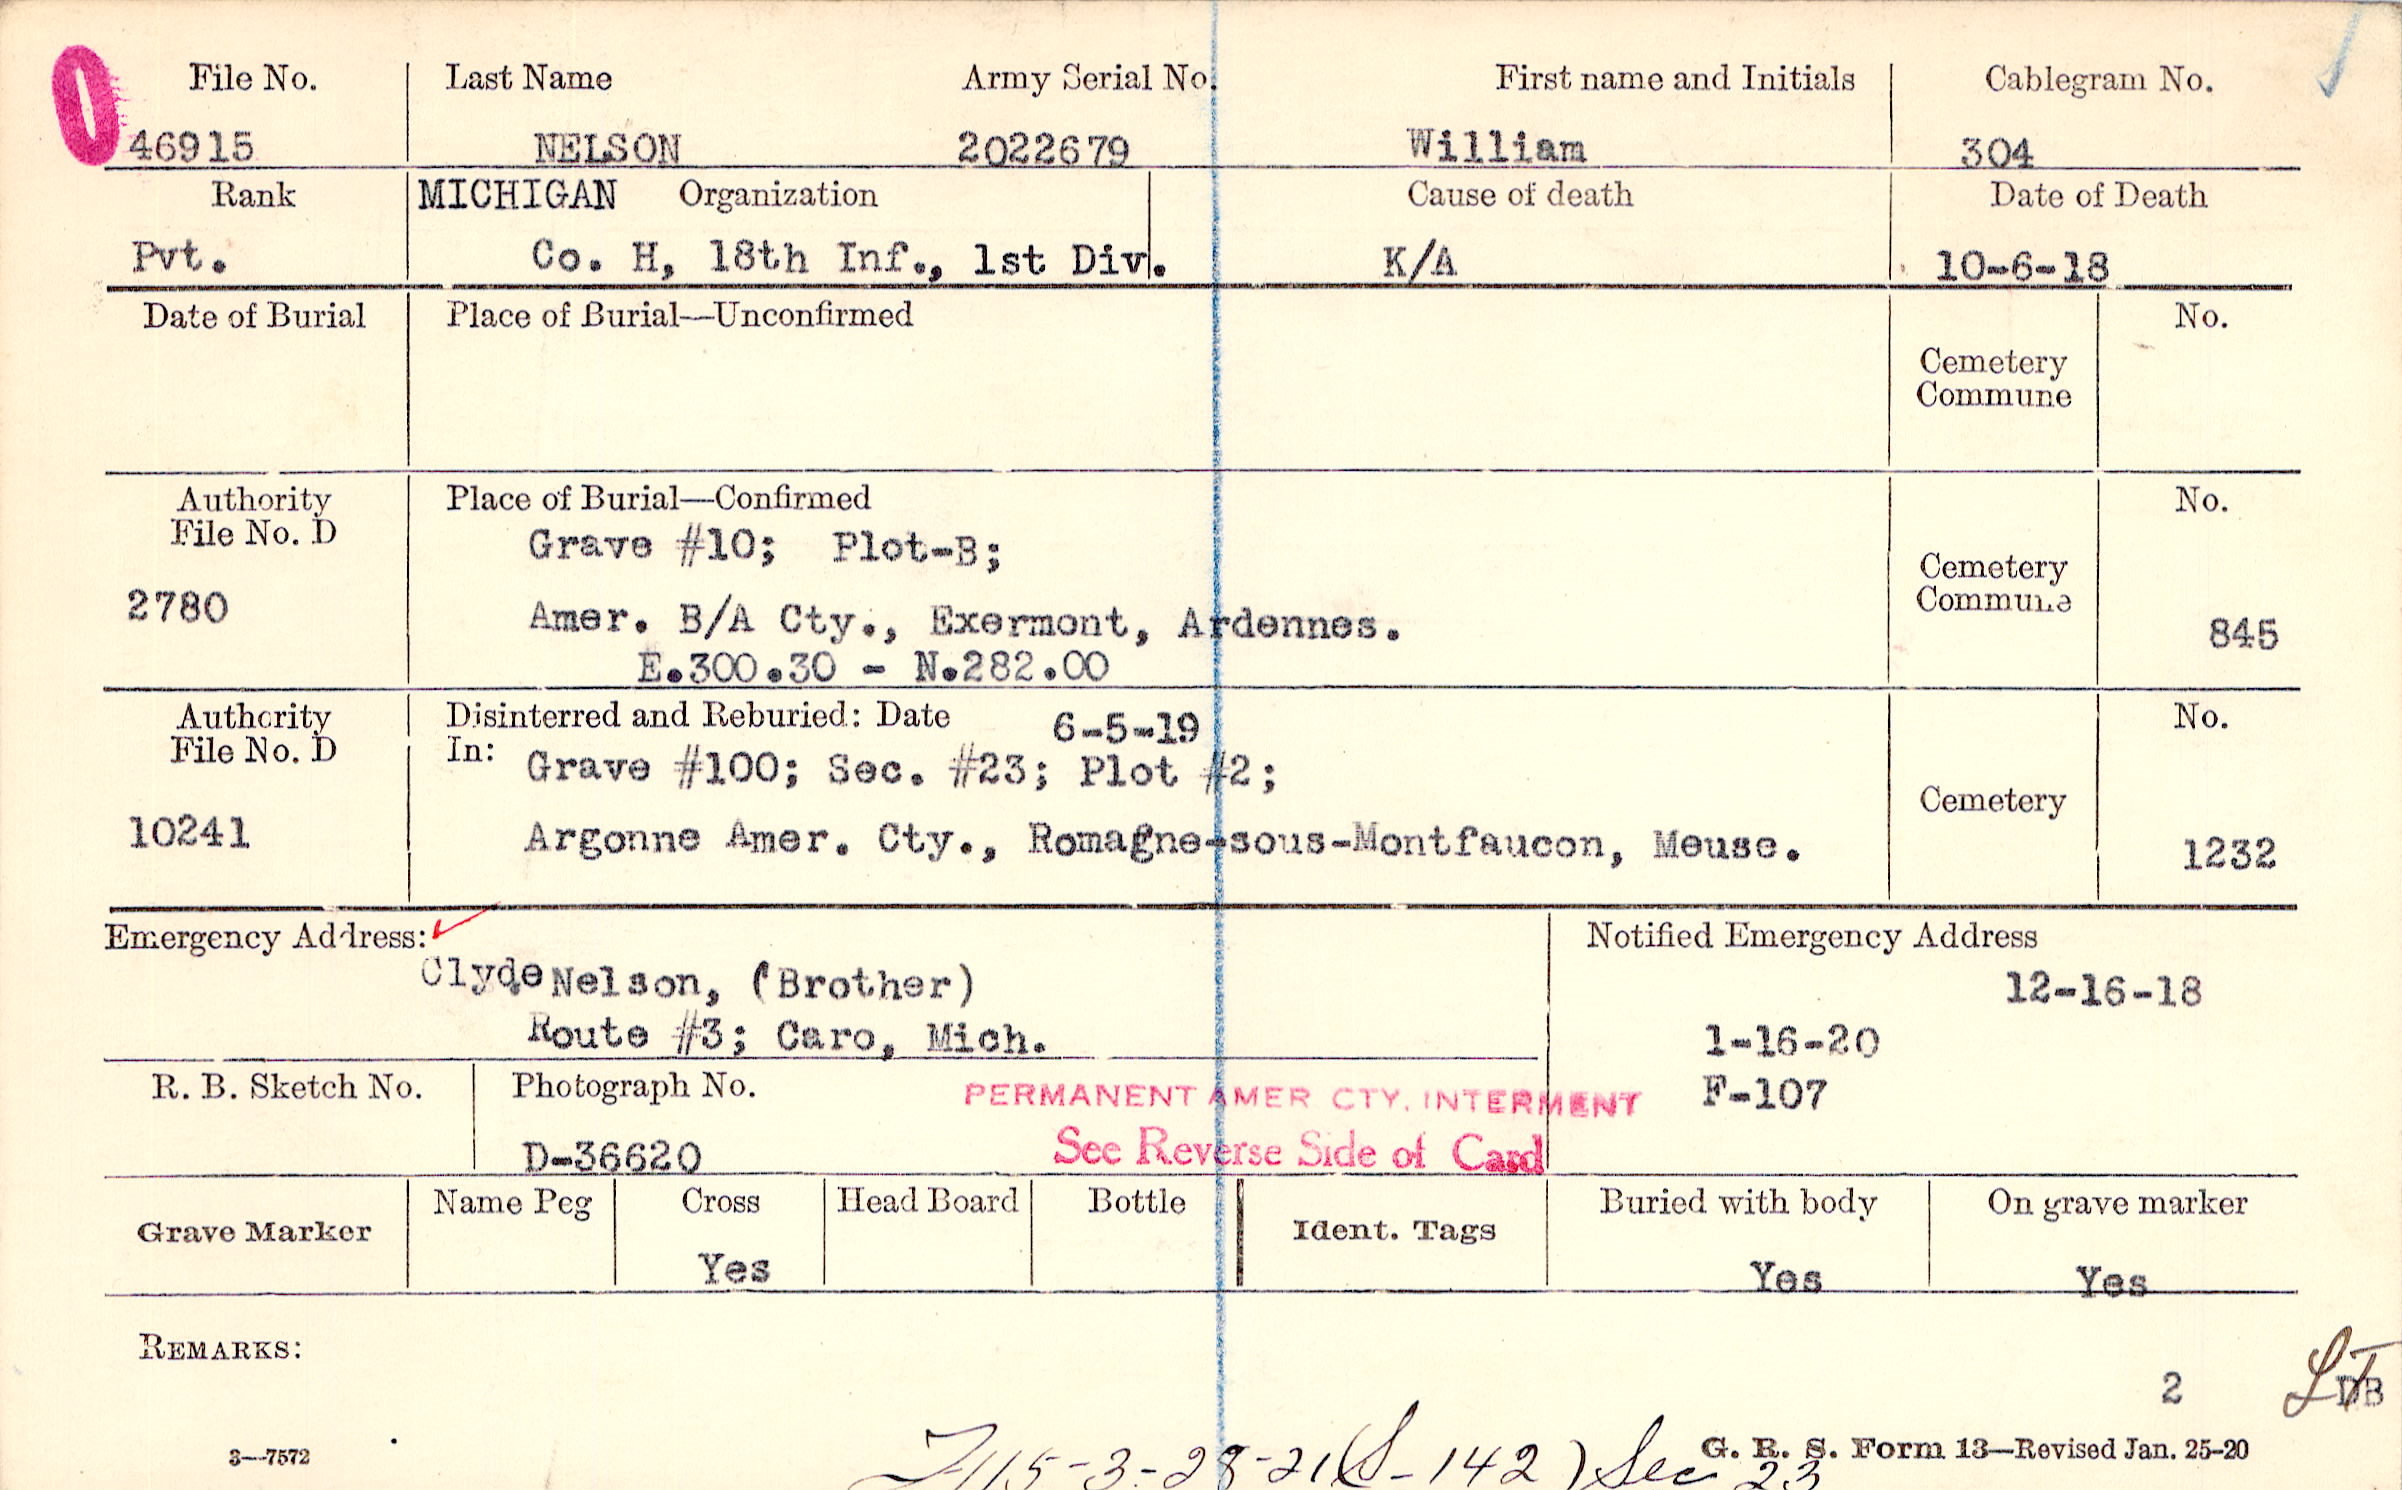 File No. Last Name Army Serial No. First name and Initials Cablegram No.
46915 NELSON 2022679 William 304
Rank MICHIGAN Organization Cause of death Date of Death
Pvt. Co. H, 18th Inf., 1st Div. K/A 10-6-18
Date of Burial Place of Burial—Unconfirmed No.
Cemetery
Commune
Authority Place of Burial—Confirmed No.
File No. D
Grave #10; Plot-B;
Cemetery
Commune
2780 Amer. B/A Cty., Exermont, Ardennes. 845
E.300.30 - N.282.00
Authority Disinterred and Reburied: Date 6-5-19 No.
File No. D In: Grave #100; Sec. #23; Plot #2;
Cemetery
10241 Argonne Amer. Cty., Romagne-sous-Montfaucon, Meuse. 1232
Emergency Address: Notified Emergency Address
Clyde Nelson, (Brother) 12-16-18
Route #3; Caro, Mich. 1-16-20
R. B. Sketch No. Photograph No. PERMANENT AMER CTY. INTERMENT F-107
D-36620 See Reverse Side of Card
Grave Marker Name Peg Cross Head Board Bottle Ident. Tags Buried with body On grave marker
Yes Yes Yes
REMARKS:
2 DB
3—7572 G. R. S. Form 13—Revised Jan. 25-20
115-3-28-21 (S-142) Sec 23